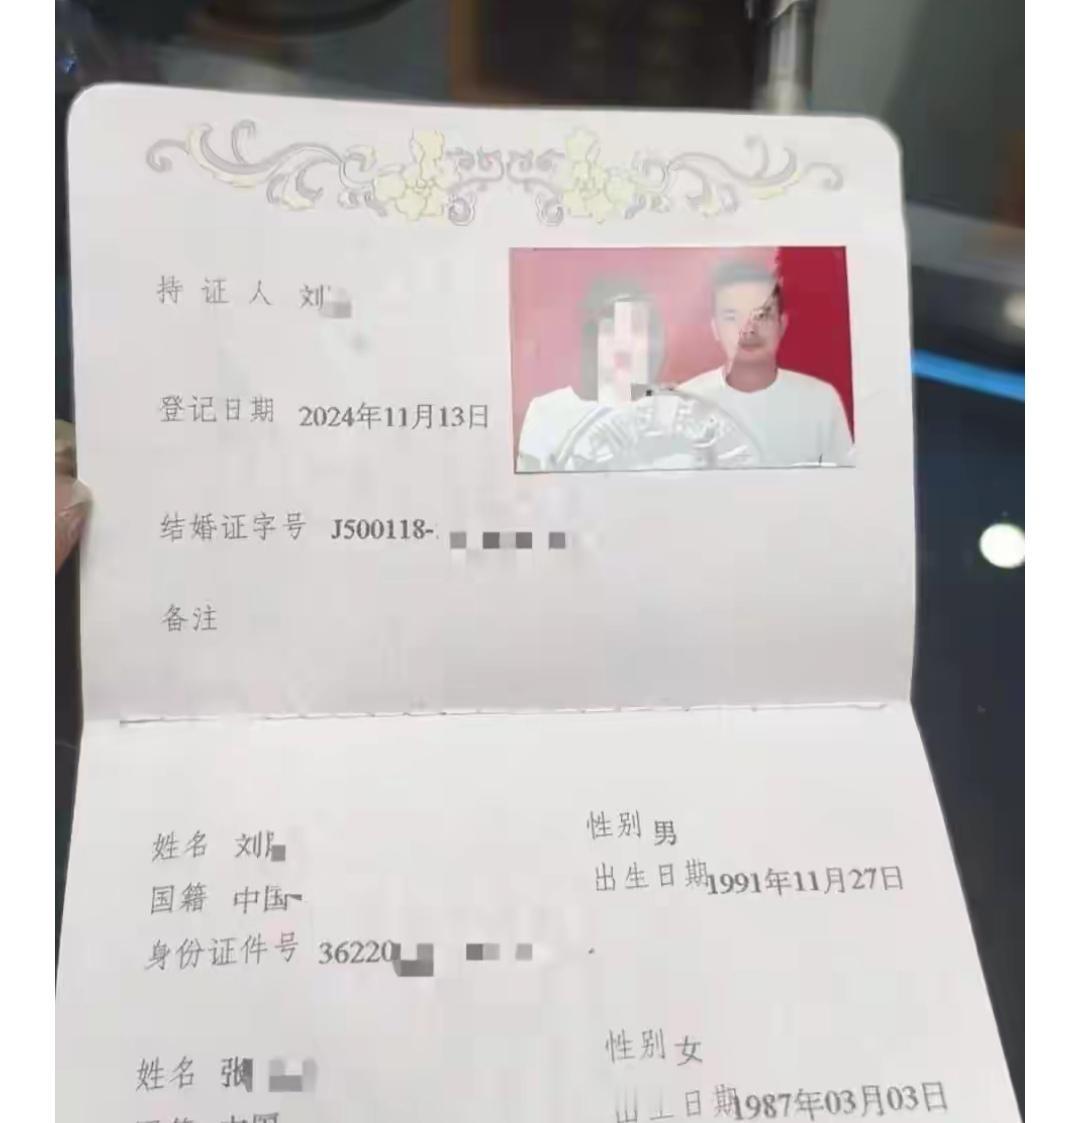 持证人 刘
登记日期 2024年11月13日
结婚证字号 J500118-
备注
姓名 刘 性别 男
国籍 中国 出生日期 1991年11月27日
身份证件号 36220
姓名 张 性别 女
国籍 中国 出生日期 1987年03月03日